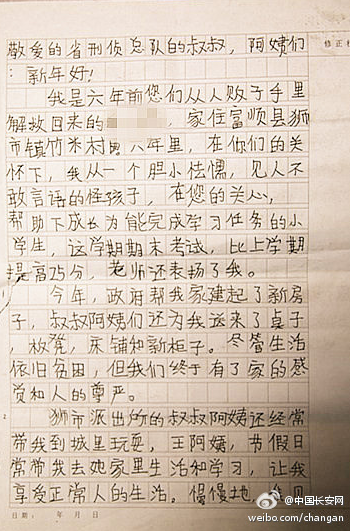 敬爱的省刑侦总队的叔叔，阿姨们
：新年好！
修正栏
我是六年前您们从人贩子手里
解救回来的，家住富顺县狮
市镇竹米村 六年里，在你们的关
怀下，我从一个胆小怯懦，见人不
敢言语的怪孩子，在您的关心，
帮助下成长为能完成学习任务的小
学生，这学期期末考试，比上学期
提高75分，老师还表扬了我。
今年，政府帮我家建起了新房
子，叔叔阿姨们还为我运来了桌子
，板凳，床铺和新柜子。尽管生活
依旧贫困，但我们终于有了家的感
觉和人的尊严。
狮市派出所的叔叔阿姨还经常
带我到城里玩耍，王阿姨，节假日
常带我去她家里生活和学习，让我
享受正常人的生活。慢慢地，
日期： 年 月 日
@中国长安网
weibo.com/changan